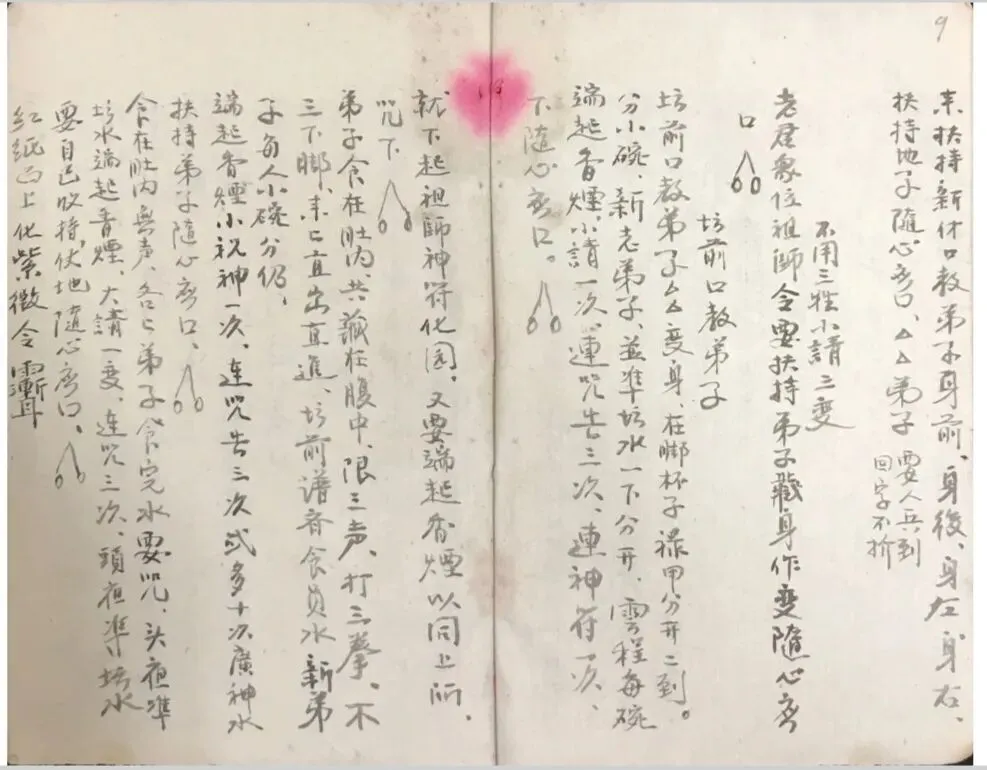 9
来扶持新休口教弟子身前、身後、身左身右、
扶持地子随心斉口、△△弟子要人兵到
回字不折
不用三牲小請三变
老君眾位祖師令要扶持弟子藏身作变隨心斉
口
坛前口教弟子
坛前口教弟子△△变身、在脚杯子禄甲分开二到。
分小碗、新老弟子、並準坛水一下分开、雲程每碗
端起香煙、小請一次、連咒告三次、連神符一次、
下隨心斉口。
就下起祖師神符化园、又要端起香煙以同上所、
咒下
弟子食在肚内、共藏在腹中、限三声、打三拳、不
三下脚、来〻直出直進、坛前譜斉食員水新弟
子每人小碗分仍、
端起香煙小祝神一次、连咒告三次或多十次廣神水
扶持弟子随心斉口、
食在肚内無声、各〻弟子食完水要咒、头夜準
坛水端起香煙、大請一变、连咒三次、頭夜準坛水
要自己收持、伏地随心斉口、
红纸凸上化紫微令